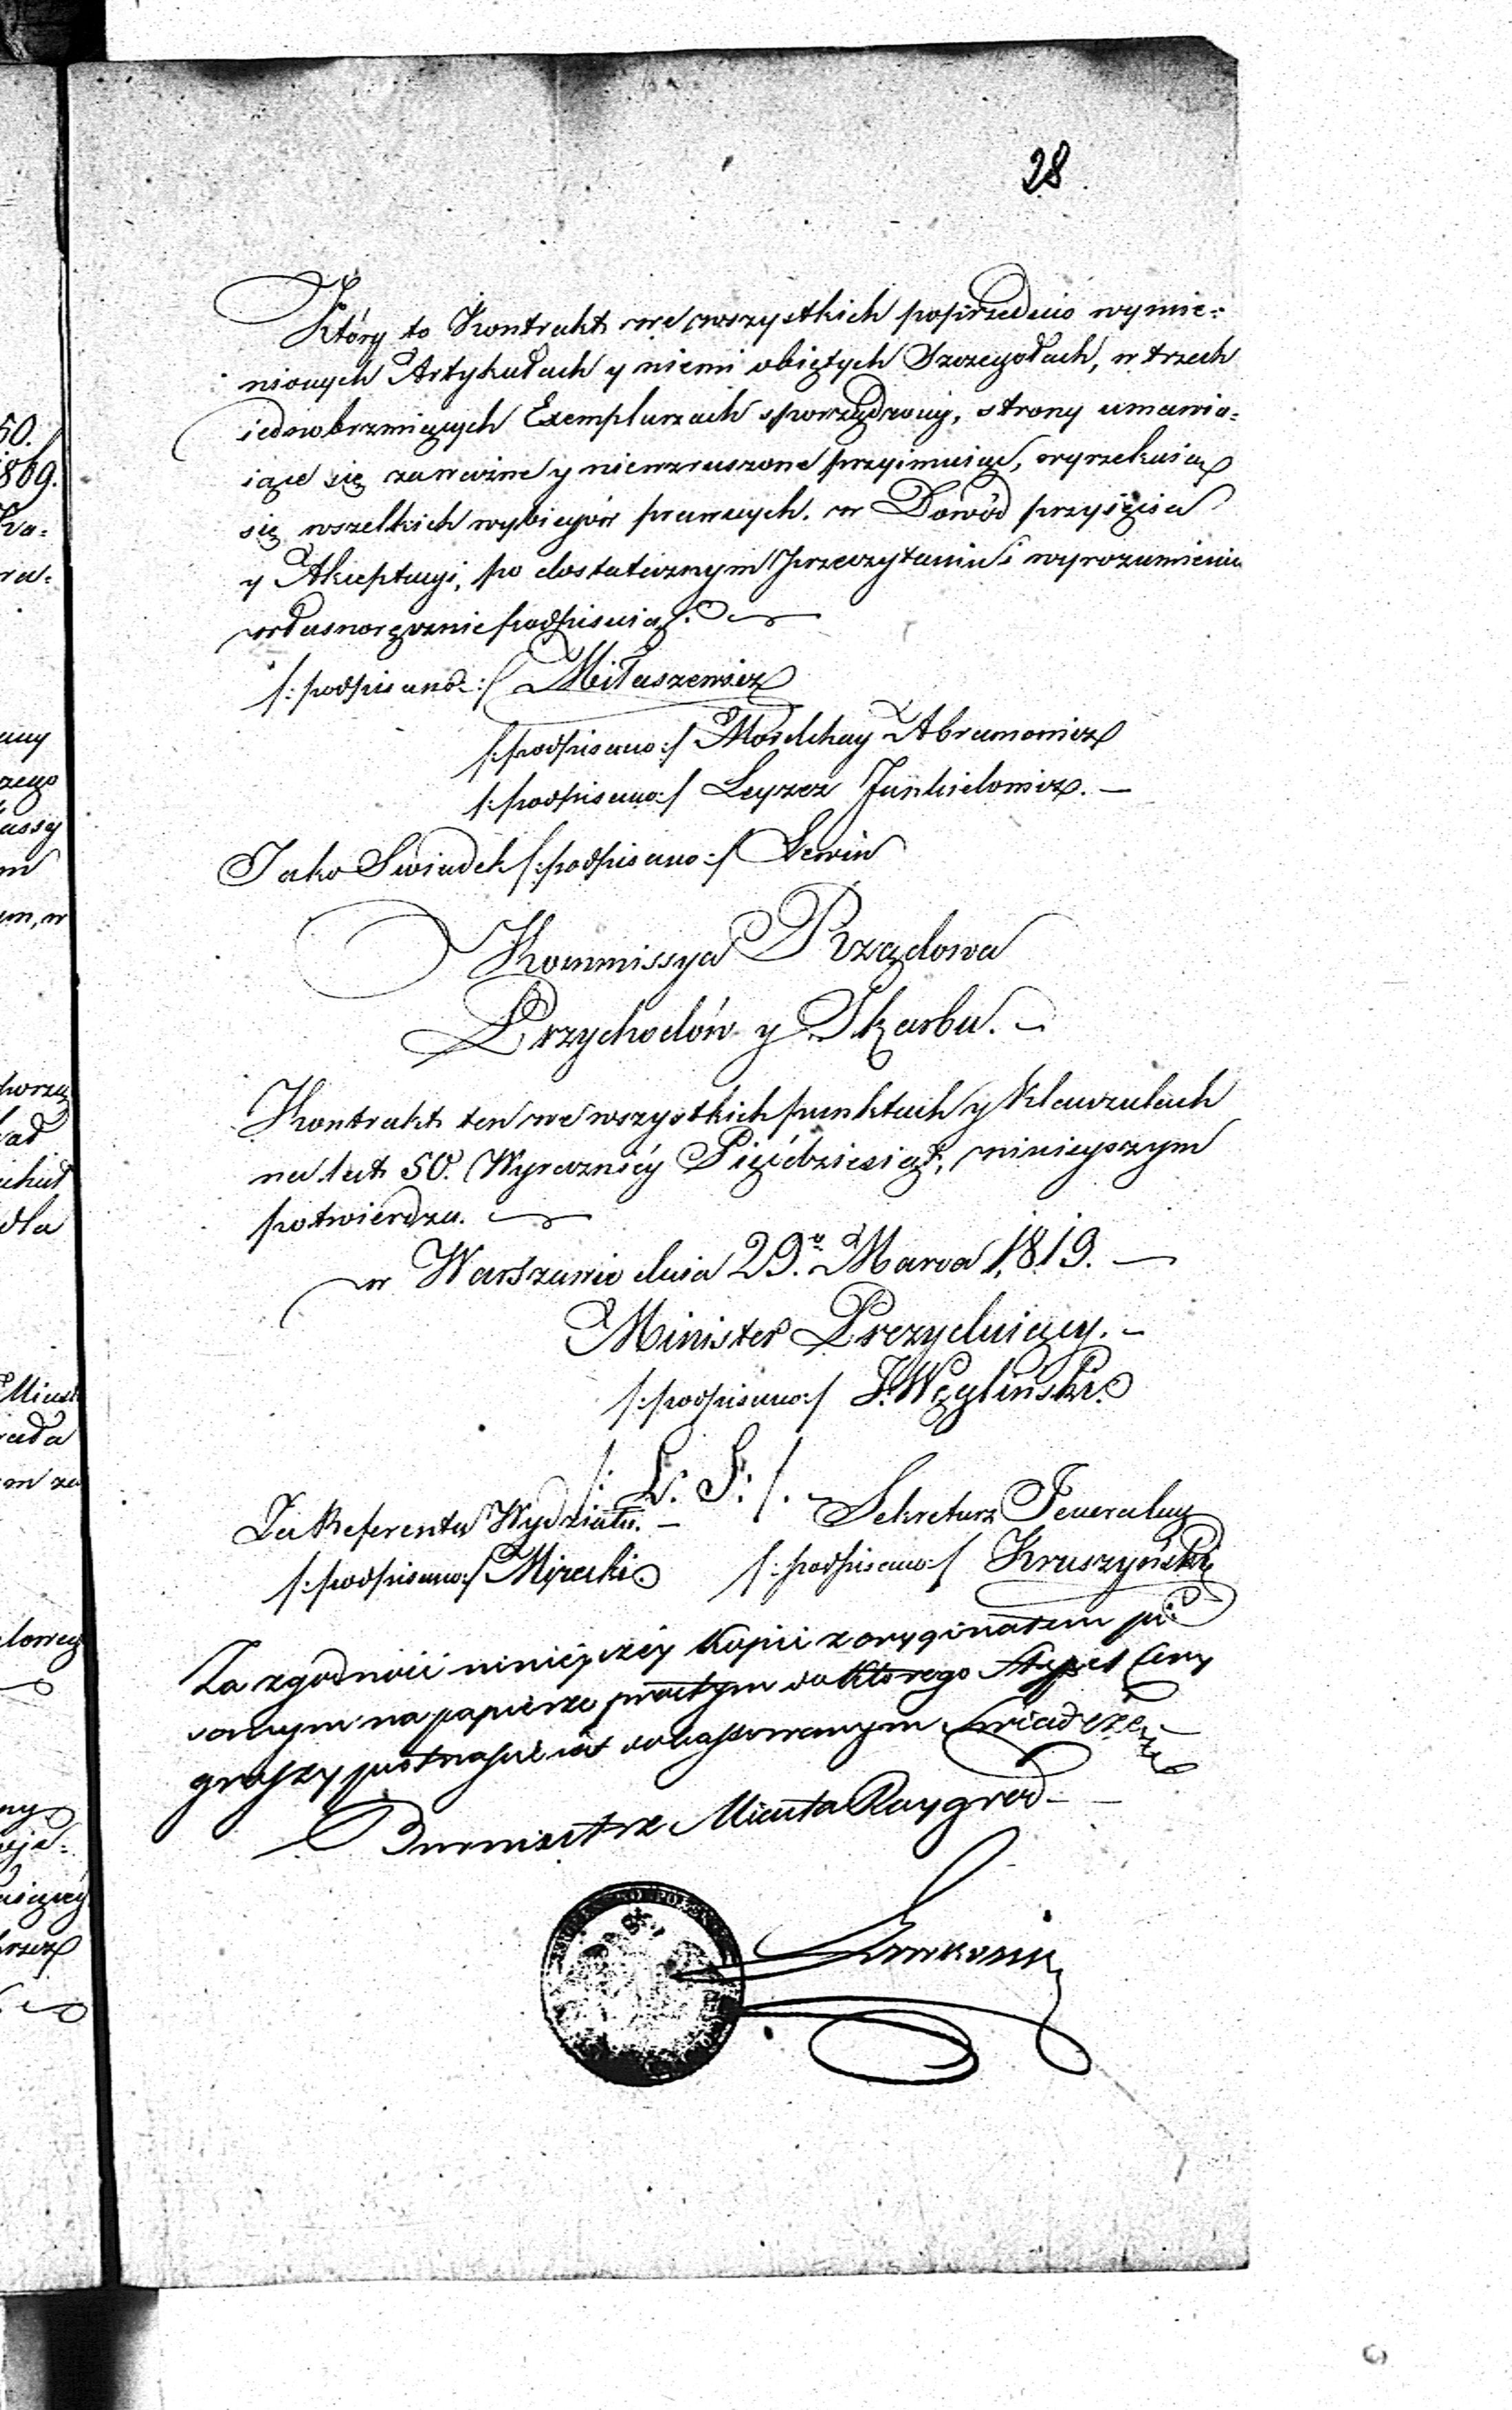 28
Który to Kontrakt we wszystkich poprzednio wymie:
nionych Artykułach y niemi obiętych Szczegołach, w trzech
iednobrzmiących Exemplarzach sporządzony, strony umawia:
iące się za ważne y niewzruszone przyimuiąc, wyrzekaią
się wszelkich wybiegów prawnych. w Dowód przyięcia
y Akceptacyi, po dostatecznym przeczytaniu i wyrozumieniu
własnoręcznie podpisuią.
/:podpisano:/ Miłaszewicz
/:podpisano:/ Mordchay Abramowicz
/:podpisano:/ Leyzer Jankielowicz. —
Jako Swiadek /:podpisano:/ Lewin
Kommissya Rządowa
Przychodów y Skarbu. —
Kontrakt ten we wszystkich punktach y Klauzulach
na lat 50. Wyraznićy Pięćdziesiąt, ninieyszym
potwierdza.
w Warszawie dnia 29.º Marca 1819. —
Minister Prezyduiący. —
/:podpisano:/ J. Węgliński
/: L: S: /. —
Za Referenta Wydziału. — Sekretarz Jeneralny
/:podpisano:/ Mirecki /:podpisano:/ Kruszyński
Za zgodność ninieyszéy Kopii z oryginałem pi
sanym na papierze prostym do którego Stępel Ceny
groszy dokassowanym Swiadcze
Burmistrz Miasta Raygrod —